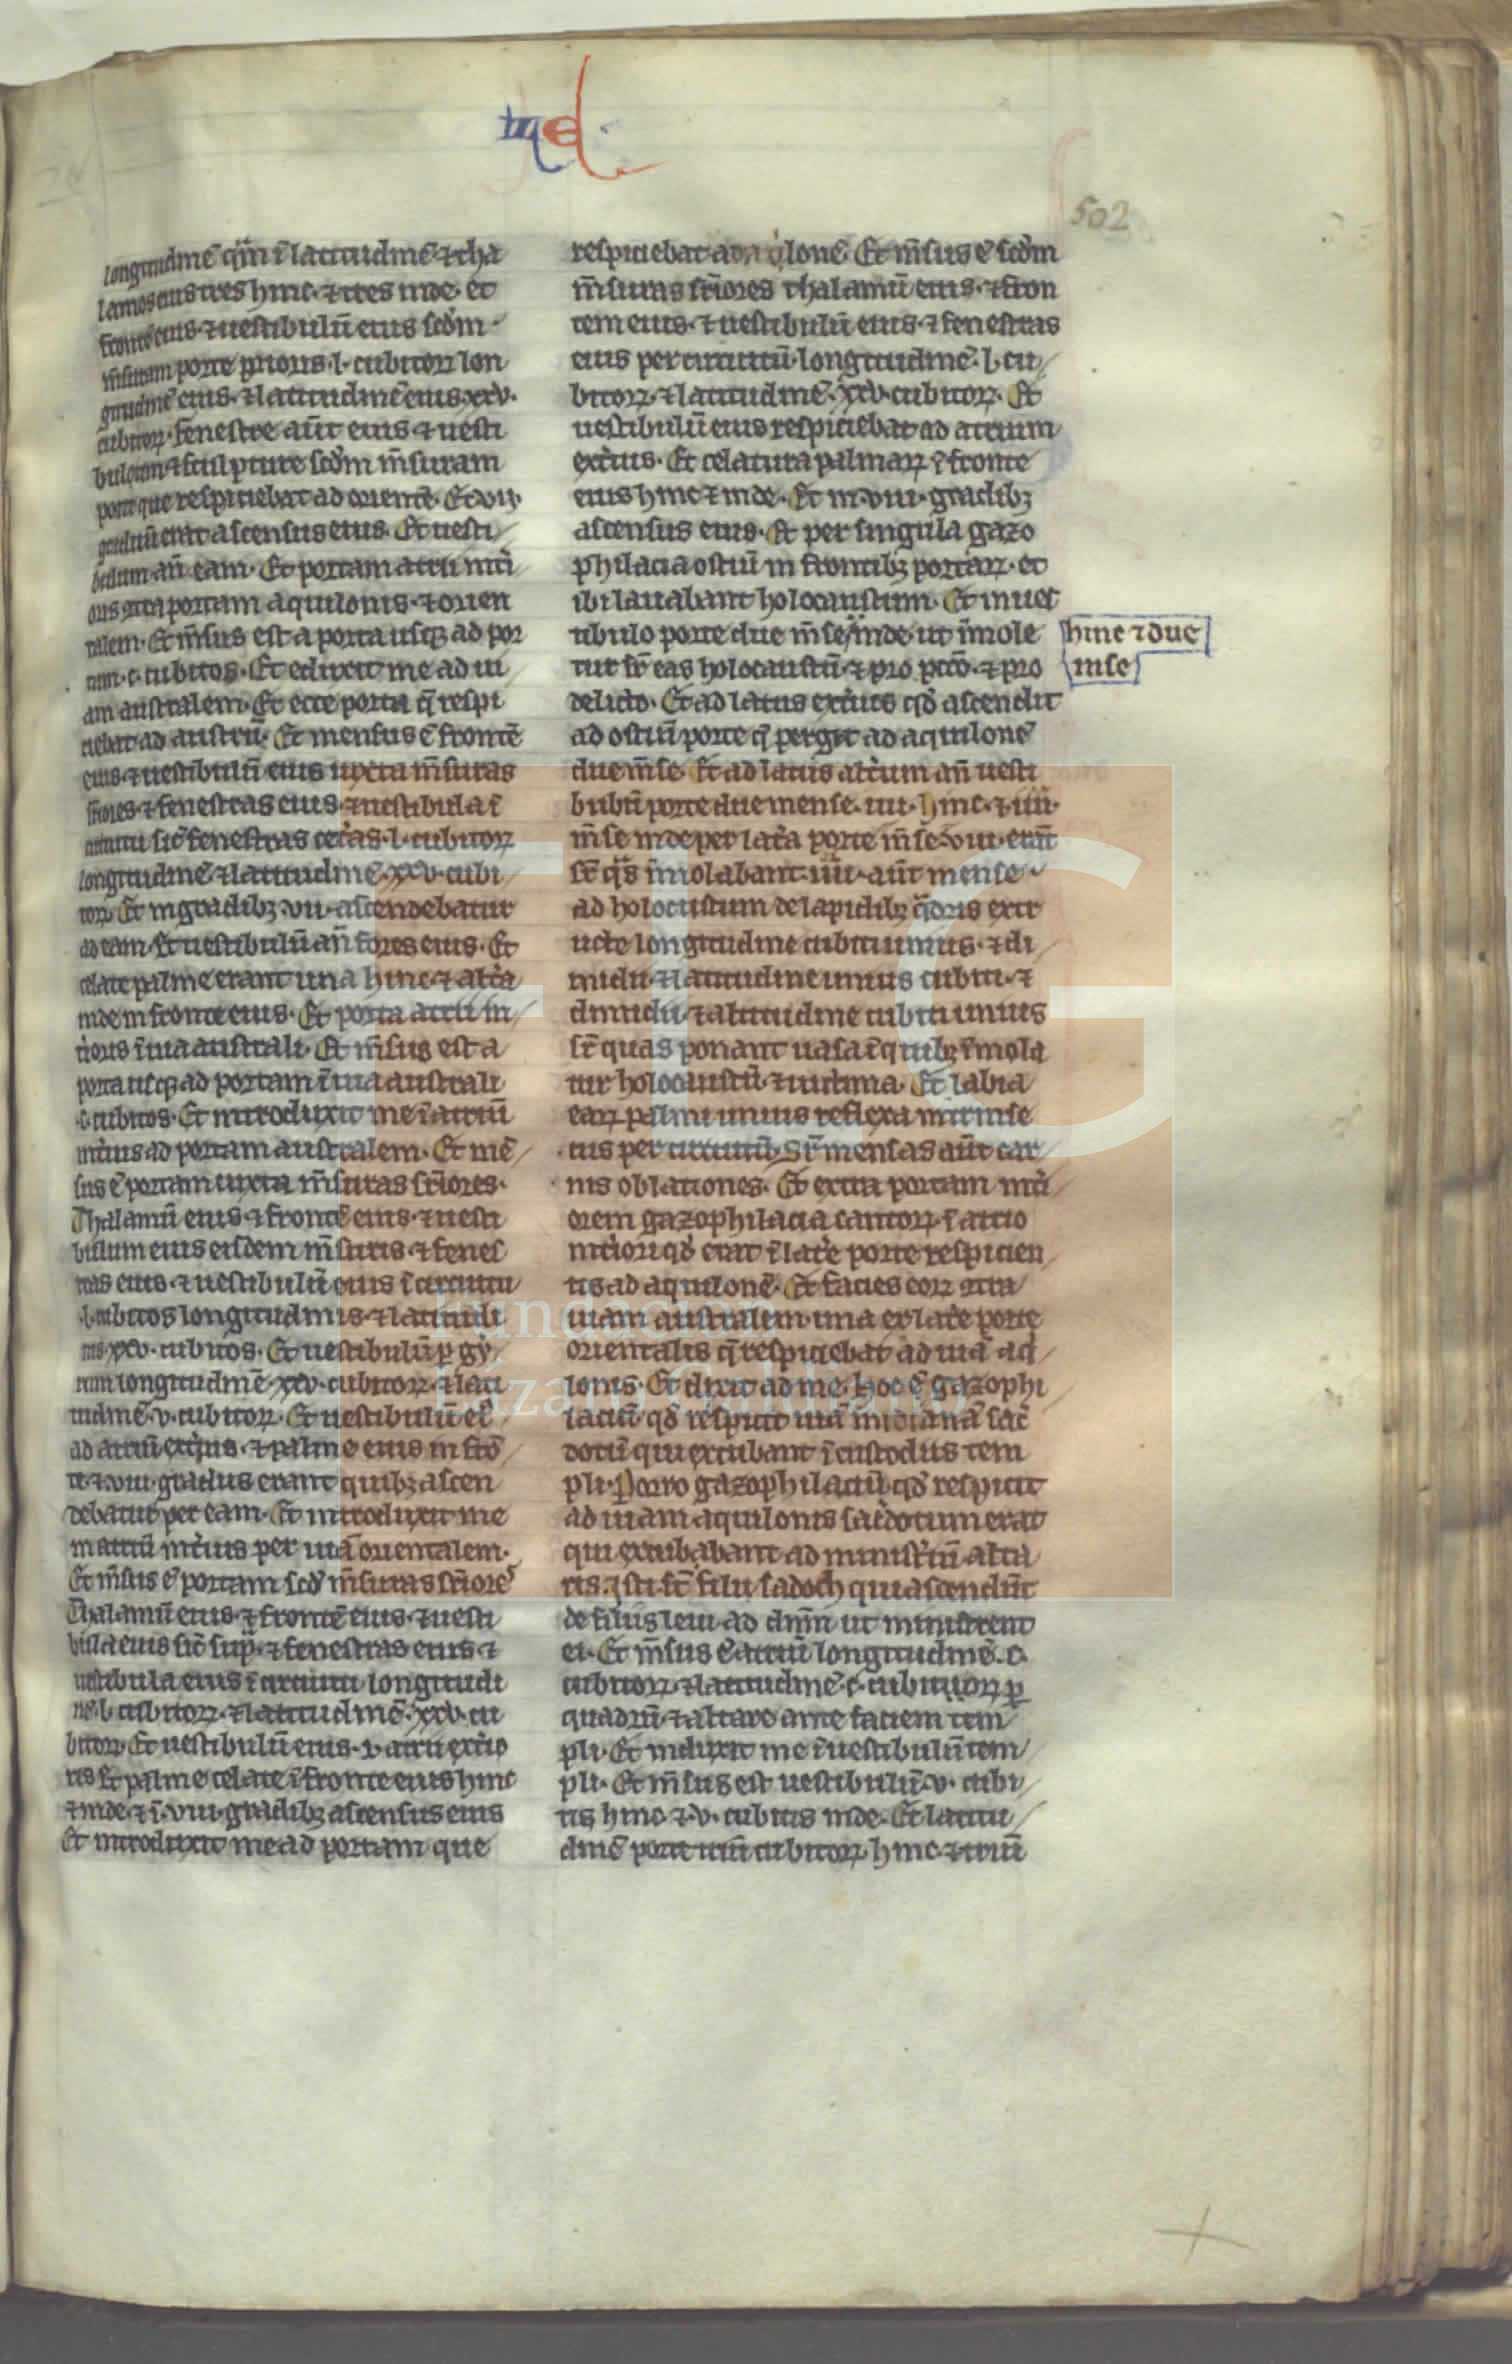 ẜed
502
longitudinē q̄m ī latitudinē ⁊ tha
lamos eius tres hinc ⁊ tres inde et
frontē eius ⁊ uestibulū eius scd̄m
m̄suram porte prioris · l · cubitoꝝ lon
gitudinē eius ⁊ latitudinē eius xxv ·
cubitoꝝ · fenestre aūt eius ⁊ uesti
bulum ⁊ sculpture scd̄m m̄suram
porte que respiciebat ad orientē · Et · vii ·
graduū erat ascensus eius · Et uesti
bulum añ eam · Et portam atrii int̄i
oris ꝯtra portam aquilonis · ⁊ orien
talem · Et m̄sus est a porta usqꝫ ad por
tam · c · cubitos · Et eduxit me ad ui
am australem · Et ecce porta q̄ respi
ciebat ad austrū · Et mensus ē frontē
eius ⁊ uestibulū eius iuxta m̄suras
sr̄iores ⁊ fenestras eius ⁊ uestibula ī
circuitu sic̄ fenestras cet̄as · l · cubitoꝝ
longitudinē ⁊ latitudinē · xxv · cubi
toꝝ · Et in gradibꝫ vii · ascendebatur
ad eam · Et uestibulū añ fores eius · Et
celate palme erant una hinc ⁊ alt̄a
inde in fronte eius · Et porta atrii in
t̄ioris ī uia australi · Et m̄sus est a
porta usqꝫ ad portam ī uia australi
· c · cubitos · Et introduxit me ī atriū
int̄ius ad portam australem · Et mē
sus ē portam iuxta m̄suras sr̄iores ·
Thalamū eius ⁊ frontē eius ⁊ uesti
bulum eius eisdem m̄suris ⁊ fenes
tras eius ⁊ uestibulū eius ī circuitu
· l · cubitos longitudinis ⁊ latitudi
nis · xxv · cubitos · Et uestibulū ꝑ gy
rum longitudinē · xxv · cubitoꝝ · ⁊ lati
tudinē · v · cubitoꝝ · Et uestibulū ei9
ad atriū ext̄ius · ⁊ palme eius in frō
te · ⁊ · viii · gradus erant quibꝫ ascen
debatur per eam · Et introduxit me
in atriū int̄ius per uiā orientalem ·
Et m̄sus ē portam scd̄ m̄suras sr̄iores
Thalamū eius ⁊ frontē eius ⁊ uesti
bula eius sic̄ sup̄ · ⁊ fenestras eius ⁊
uestibula eius ī circuitu longitudi
nē · l · cubitoꝝ · ⁊ latitudinē · xxv · cu
bitoꝝ · Et uestibulū eius · ⁊ atrii ext̄io
ris Et palme celate ī fronte eius hinc
⁊ inde ⁊ ī · viii · gradibꝫ ascensus eius
Et introduxit me ad portam que
respiciebat ad aq̇lonē · Et m̄sus ē scd̄m
m̄suras sr̄iores thalamū eius · ⁊ fron
tem eius · ⁊ uestibulū eius · ⁊ fenestras
eius per circuitū · longitudinē · l · cu
bitoꝝ · ⁊ latitudinē · xxv · cubitoꝝ · Et
uestibulū eius respiciebat ad atrium
ext̄ius · Et celatura palmaꝝ ī fronte
eius hinc ⁊ inde · Et in · viii · gradibꝫ
ascensus eius · Et per singula gazo
philacia ostiū in frontibꝫ portaꝝ · et
ibi lauabant holocaustum · Et in ues
tibulo porte due m̄se inde ut īmole
hinc ⁊ due
mēse
tur sr̄ eas holocaustū ⁊ pro pcc̄o · ⁊ pro
delicto · Et ad latus ext̄ius qd̄ ascendit
ad ostiū porte q̄ pergit ad aquilonē
due m̄se · Et ad latus alt̄um añ uesti
bulū porte due mense · iiii · hinc · ⁊ iiii ·
m̄se inde per lat̄a porte m̄se viii · erāt
sr̄ q̄s īmolabant · iiii · aūt mense
ad holocustum de lapidibꝫ q̄dris extr
ucte longitudine cubiti unius · ⁊ di
midii · ⁊ latitudine unius cubiti · ⁊
dimidii · ⁊ altitudine cubiti unius
sr̄ quas ponant uasa ī quibꝫ īmola
tur holocaustū ⁊ uictima · Et labia
eaꝝ palmi unius reflexa intrinse
cus per circuitū · Sr̄ mensas aūt car
nis oblationes · Et extra portam int̄i
orem gazophilacia cantoꝝ ī atrio
int̄iori qd̄ erat ī lat̄e porte respicien
tis ad aquilonē · Et facies eoꝝ ꝯtra
uiam australem · una ex lat̄e porte
orientalis q̄ respiciebat ad uiā aq̇
lonis · Et dixit ad me · Hoc ē gazophi
laciū · qd̄ respicit uiā m̄idianā sac̄
dotū qui excubant ī custodiis tem
pli · Porro gazophilaciū qd̄ respicit
ad uiam aquilonis sac̄dotum erat
qui excubabant ad minist̄iū alta
ris · Isti sr̄ filii sadoch qui ascendūt
de filiis leui ad dn̄m ut ministrent
ei · Et m̄sus ē atriū longitudinē · c ·
cubitoꝝ · ⁊ latitudinē · c · cubitoꝝ ꝑ
quadrū · ⁊ altare ante faciem tem
pli · Et induxit me ī uestibulū tem
pli · Et m̄sus est uestibulū · v · cubi
tis hinc ⁊ · v · cubitis inde · Et latitu
dinē porte triū cubitoꝝ hinc · ⁊ triū
Fundación
Lázaro Galdiano
FLG